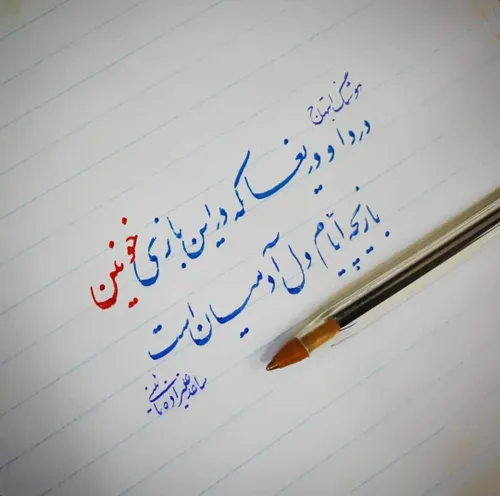 هوشنگ ابتهاج
دردا و دریغا که در این بازی خونین
بازیچه ایام دل آدمیان است